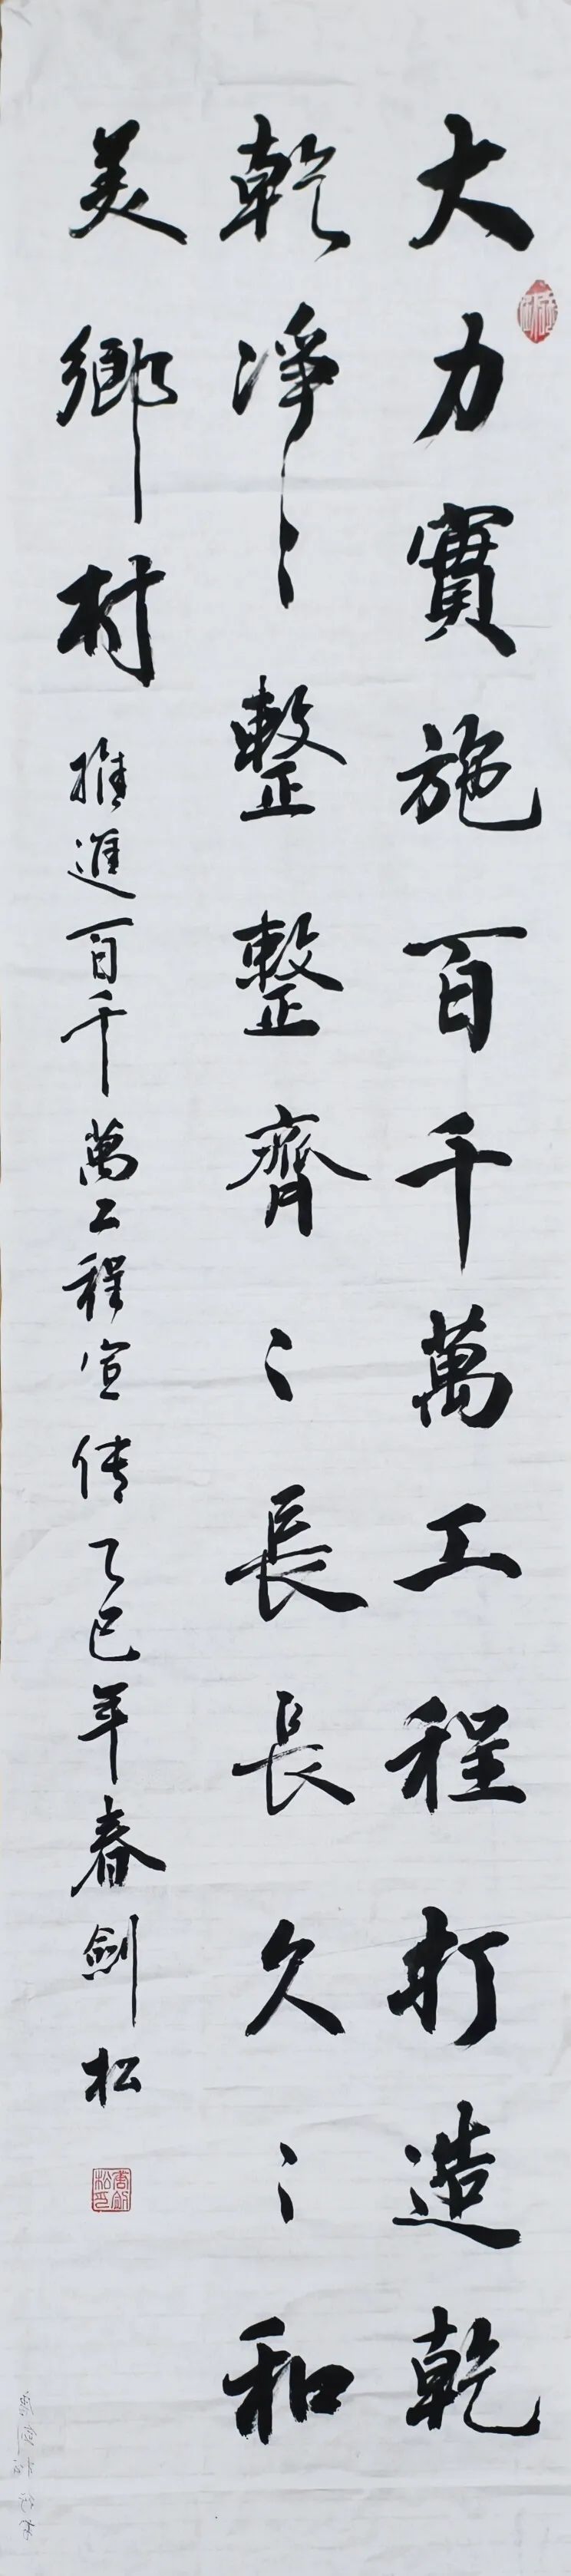 大力實施百千萬工程打造乾
乾淨〻整整齊〻長長久〻和
美鄉村
推進百千萬工程宣传乙巳年春劍松